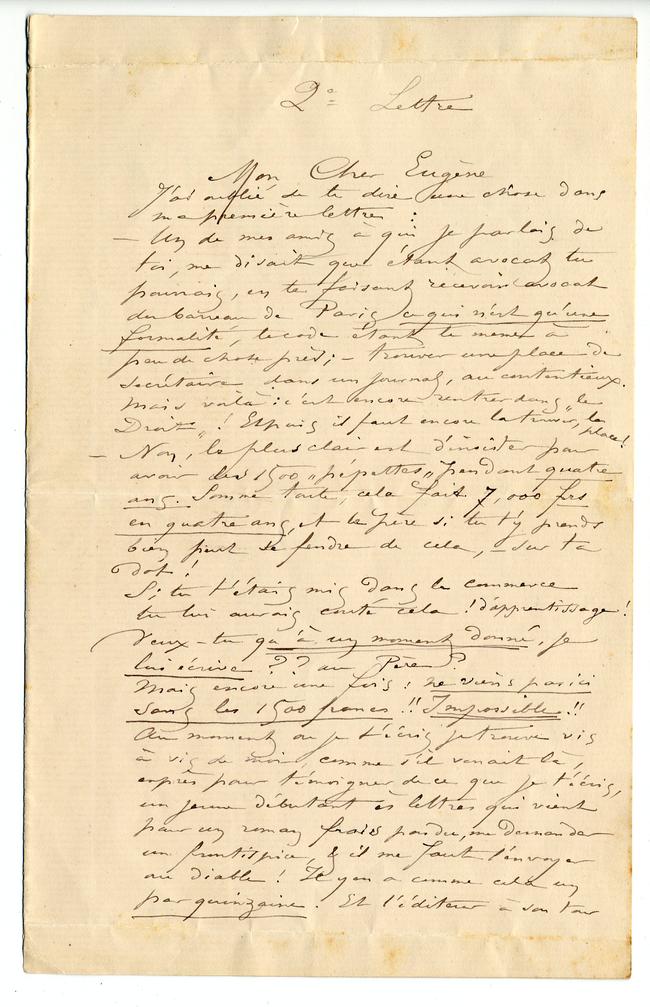 2e Lettre
Mon Cher Eugène
J'ai oublié de te dire une chose dans
ma première lettre :
– Un de mes amis à qui je parlais de
toi, me disait que étant avocat tu
pourrais, en te faisant recevoir avocat
du barreau de Paris ce qui n'est qu'une
formalité, le code étant le même à
peu de chose près ; – trouver une place de
secrétaire dans un journal, au contentieux.
Mais voilà : c'est encore rentrer dans "le
Droit" ! Et puis il faut encore la trouver, la place !
– Non, le plus clair est d'insister pour
avoir des 1500 "pepettes" pendant quatre
ans. Somme toute, cela fait 7,000 frs
en quatre ans, et le Père si tu t'y prends
bien peut se fendre de cela, – sur ta
Dot !
Si tu t'étais mis dans le commerce
tu lui aurais couté cela ! d'apprentissage !
Veux-tu qu'à un moment donné, je
lui écrive ?? au Père ?
Mais encore une fois : ne viens par ici
sans les 1500 francs !! Impossible !!
Au moment où je t'écris je trouve vis
à vis de moi, comme s'il venait là,
exprès pour témoigner de ce que je t'écris,
un jeune débutant ès lettres qui vient
pour un roman frais pondu, me demander
un frontispice, & il me faut l'envoyer
au diable ! Il y en a comme cela un
par quinzaine. Et l'éditeur à son tour